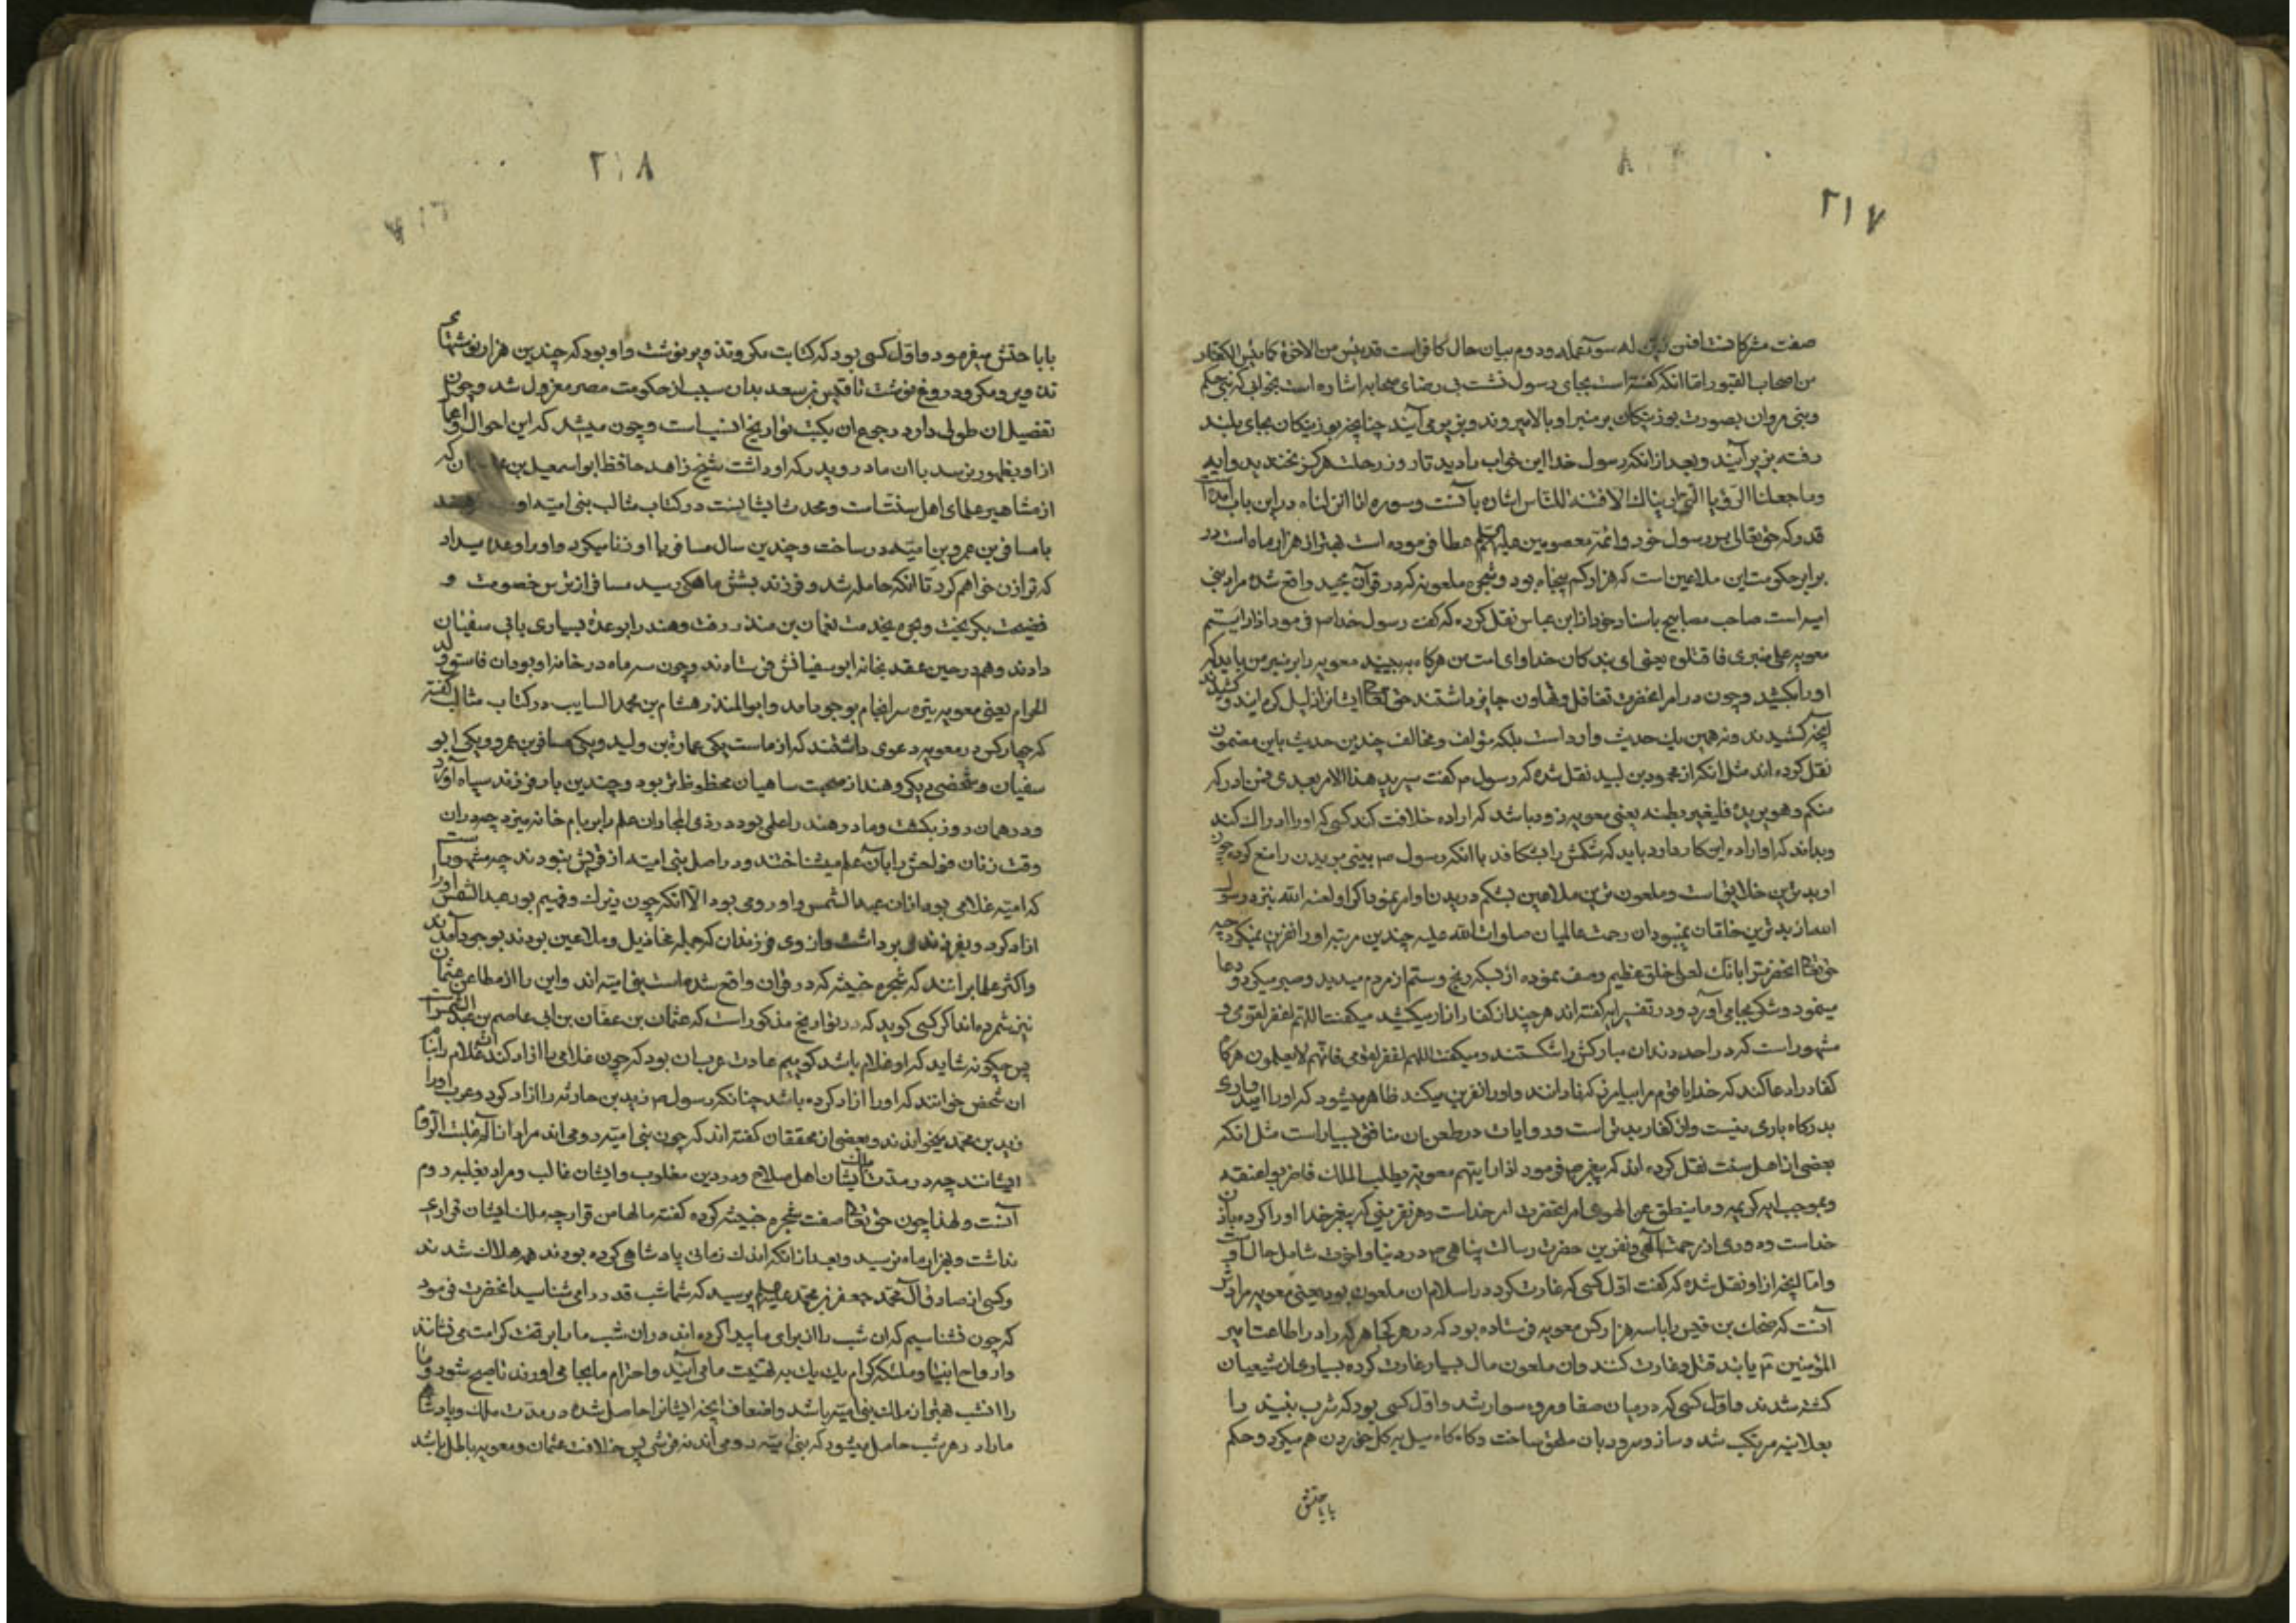 ٢١٧
صفت مشرکانست افمن زین له سوء عمله ودوم بیان حال کافرانست قد یئس من الاخرة کما یئس الکفار
من اصحاب القبور اما انکه گفته است بجای رسول نشست بی رضای صحابه اشاره است بخوابی که بنی حکم
وبنی مروان بصورت بوزینکان بر منبر او بالا میروند وبزیر می آیند چنانچه بوزینکان بجای بلند
رفته بزیر آیند وبعد از انکه رسول خدا این خواب را دید تا روز رحلت هرکز نخندید وایه
وما جعلنا الرؤیا التی اریناک الا فتنة للناس اشاره بآنست وسوره انا انزلناه در این باب آمده
قدر که حق تعالی برسول خود وائمه معصومین علیهم عطا فرموده است بهتر از هزار ماه است در
برابر حکومت این ملاعین است که هزار کم پنجاه بود وشجره ملعونه که در قرآن مجید واقع شده مراد بنی
امیه است صاحب مصابیح باسناد خود از ابن عباس نقل کرده که گفت رسول خدا ص فرمود اذا رایتم
معویه علی منبری فاقتلوه یعنی ای بندکان خدا وای امت من هرکاه به بینید معویه را بر منبر من باید که
اورا بکشید وچون در امر انحضرت تغافل وتهاون جایز داشتند حق تعا ایشانرا ذلیل کرد وکشیدند
آنچه کشیدند ونه همین یک حدیث وارد است بلکه مؤلف ومخالف چندین حدیث باین مضمون
نقل کرده اند مثل انکه از محمود بن لبید نقل شده که رسول ص گفت سیرید هذا الامر بعدی فمن ادرکه
منکم وهو یریده فلیقتر بطنه یعنی معویه زود باشد که اراده خلافت کند کسی که اورا ادراک کند
وبداند که او اراده این کار دارد باید که شکمش را بشکافد با انکه رسول ص بینی بریدن را منع کرده چون
او بدترین خلایق است وملعون ترین ملاعین بشکم دریدن او امر نمود واکر او لعنه الله نزد رسول
الله از بدترین خلقان نمیبود ان رحمت عالمیان صلوات الله علیه چندین مرتبه اورا نفرین نمیکرد چه
حق تعا انحضرترا بانک لعلی خلق عظیم وصف نموده از بسکه رنج وستم از مردم میدید وصبر میکرد ودعا
مینمود وشکر بجا می آورد ودر تفسیر ایه گفته اند هرچند از کفار ازار میکشید میکفت اللهم اغفر لقومی و
مشهور است که در احد دندان مبارکش را شکستند ومیکفت اللهم اغفر لقومی فانهم لا یعلمون هرکاه
کفار را دعا کند که خدایا قوم مرا بیامرز که نادانند واورا نفرین میکند ظاهر میشود که اورا امیدواری
بدرکاه باری نیست واز کفار بدتر است وروایات در طعن ان منافق بسیار است مثل انکه
بعضی از اهل سنت نقل کرده اند که پیغمبر ص فرمود اذا رایتم معویة یطلب الملک فاضربوا عنقه
وبموجب ایه کریمه وما ینطق عن الهوی امر انحضرت امر خداست وهر نفرینی که پیغمبر خدا اورا کرده بان
خداست ودوری از رحمت الهی ونفرین حضرت رسالت پناهی ص در دنیا واخرت شامل حال اوست
واما انچه از او نقل شده که گفت اول کسی که غارت کرد در اسلام ان ملعون بود یعنی معویه مرادش
آنست که ضحاک بن قیس را با سه هزار کس معویه فرستاده بود که در هر کجا هرکه را در اطاعت امیر
المؤمنین ع یابند قتل وغارت کنند وان ملعون مال بسیار غارت کرده بسیاری از شیعیان
کشته شدند واول کسی که در میان صفا ومروه سوار شد واول کسی بود که شرب نبیذ را
بعلانیه مرتکب شد وساز وسرود بان ملحق ساخت وکاه کاه میل به کل خوردن هم میکرد وحکم
بابا حتش
٢١٨
بابا حتش میفرمود واول کسی بود که کتابت مکر وتذویر نوشت واو بود که چندین هزار نوشتهای
تذویر ومکر ودروغ نوشت تا قیس بن سعد بدان سبب از حکومت مصر معزول شد وچون
تفصیل ان طولی دارد رجوع ان بکتب تواریخ انسب است وچون میشد که این احوال واعمال
از او بظهور نرسد با ان مادر وپدر که او داشت شیخ زاهد حافظ ابو اسمعیل بن که
از مشاهیر علمای اهل سنت است ومحدث ایشانست در کتاب مثالب بنی امیه اورده هند
با مسافر بن عمرو بن امیه در ساخت وچندین سال مسافر با او زنا میکرد واورا وعده میداد
که ترا زن خواهم کرد تا انکه حامله شد وفرزند بشش ماهکی رسید مسافر از ترس خصومت و
فضیحت بکریخت وبحیره بخدمت نعمان بن منذر رفت وهند را بوعدهٔ بسیاری بابی سفیان
دادند وهم در حین عقد بخانه ابو سفیانش فرستادند وچون سه ماه در خانه او بود ان فاسق ولد
الحرام یعنی معویه بتره سرانجام بوجود امد وابو المنذر هشام بن محمد السایب در کتاب مثالب گفته
که چهار کس در معویه دعوی داشتند که از ماست یکی عمارة بن ولید ویکی مسافر بن عمرو ویکی ابو
سفیان وشخصی دیکر وهند از صحبت سیاهیان محظوظ تر بود وچندین بار فرزند سیاه آورد
ودر همان روز بکشت ومادر هند را علمی بود در ذی المجاز ان علم را بر بام خانه میزد چه در ان
وقت زنان فواحش را بان علم میشناختند ودر اصل بنی امیه از قریش نبودند چه مشهور است
که امیه غلامی بود از ان عبد الشمس واو رومی بود الا انکه چون زیرک وفهیم بود عبد الشمس اورا
ازاد کرد وبفرزندی برداشت واز وی فرزندان که جمله عزازیل وملاعین بودند بوجود آمدند
واکثر علما برانند که شجره خبیثه که در قران واقع شده است بنی امیه اند واین را از مطاعن عثمان
نیز شمرده اند اکر کسی کوید که در تواریخ مذکور است که عثمان بن عفان بن ابی عاصم بن عبد الشمس است
پس چکونه شاید که او غلام باشد کوییم عادت عربان بود که چون غلامی را ازاد کنند ان غلام را بنام
ان شخص خوانند که اورا ازاد کرده باشد چنانکه رسول ص زید بن حارثه را ازاد کرد وعرب اورا
زید بن محمد میخواندند وبعضی از محققان گفته اند که چون بنی امیه رومی اند مراد از الم غلبت الروم
ایشانند چه در مدت ملک ایشان اهل صلاح ومرد دین مغلوب وایشان غالب ومراد بغلبه روم
آنست ولهذا چون حق تعا صفت شجره خبیثه کرده گفته ما لها من قرار چه ملک ایشان قراری
نداشت وهزار ماه نرسید وبعد از انکه اندک زمانی پادشاهی کرده بودند همه هلاک شدند
وکسی از صادق آل محمد جعفر بن محمد علیهم پرسید که شما شب قدر را می شناسید انحضرت فرمود
که چون نشناسیم که ان شب را از برای ما پیدا کرده اند در ان شب ما را بر تخت کرامت می نشانند
وارواح انبیا وملئکه کرام یک یک به تهنیت ما می آیند واحترام ما بجا می اورند تا صبح شود وما
را ان شب بهتر از ملک بنی امیه باشد واضعاف انچه ایشانرا حاصل شده در مدت ملک وپادشاهی
ما را در هر شب حاصل میشود که بنی امیه رومی اند نه قرشی پس خلافت عثمان ومعویه باطل باشد